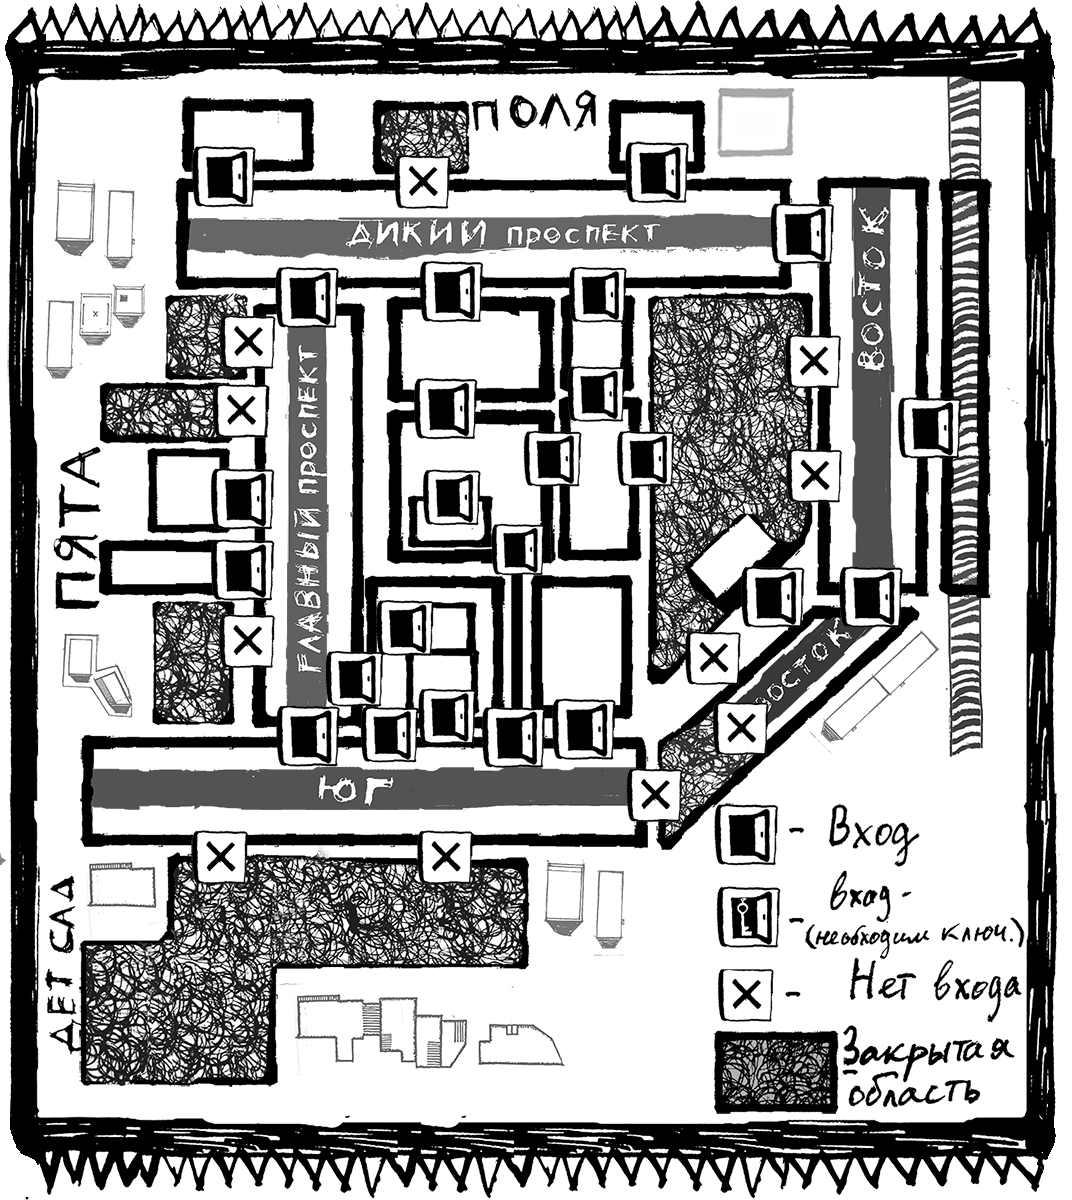 ПОЛЯ
ДИКИЙ ПРОСПЕКТ
ВОСТОК
ГЛАВНЫЙ ПРОСПЕКТ
ПЯТА
ВОСТОК
ЮГ
ДЕТ САД
- Вход
- вход -
(необходим ключ.)
- Нет входа
Закрытая
область